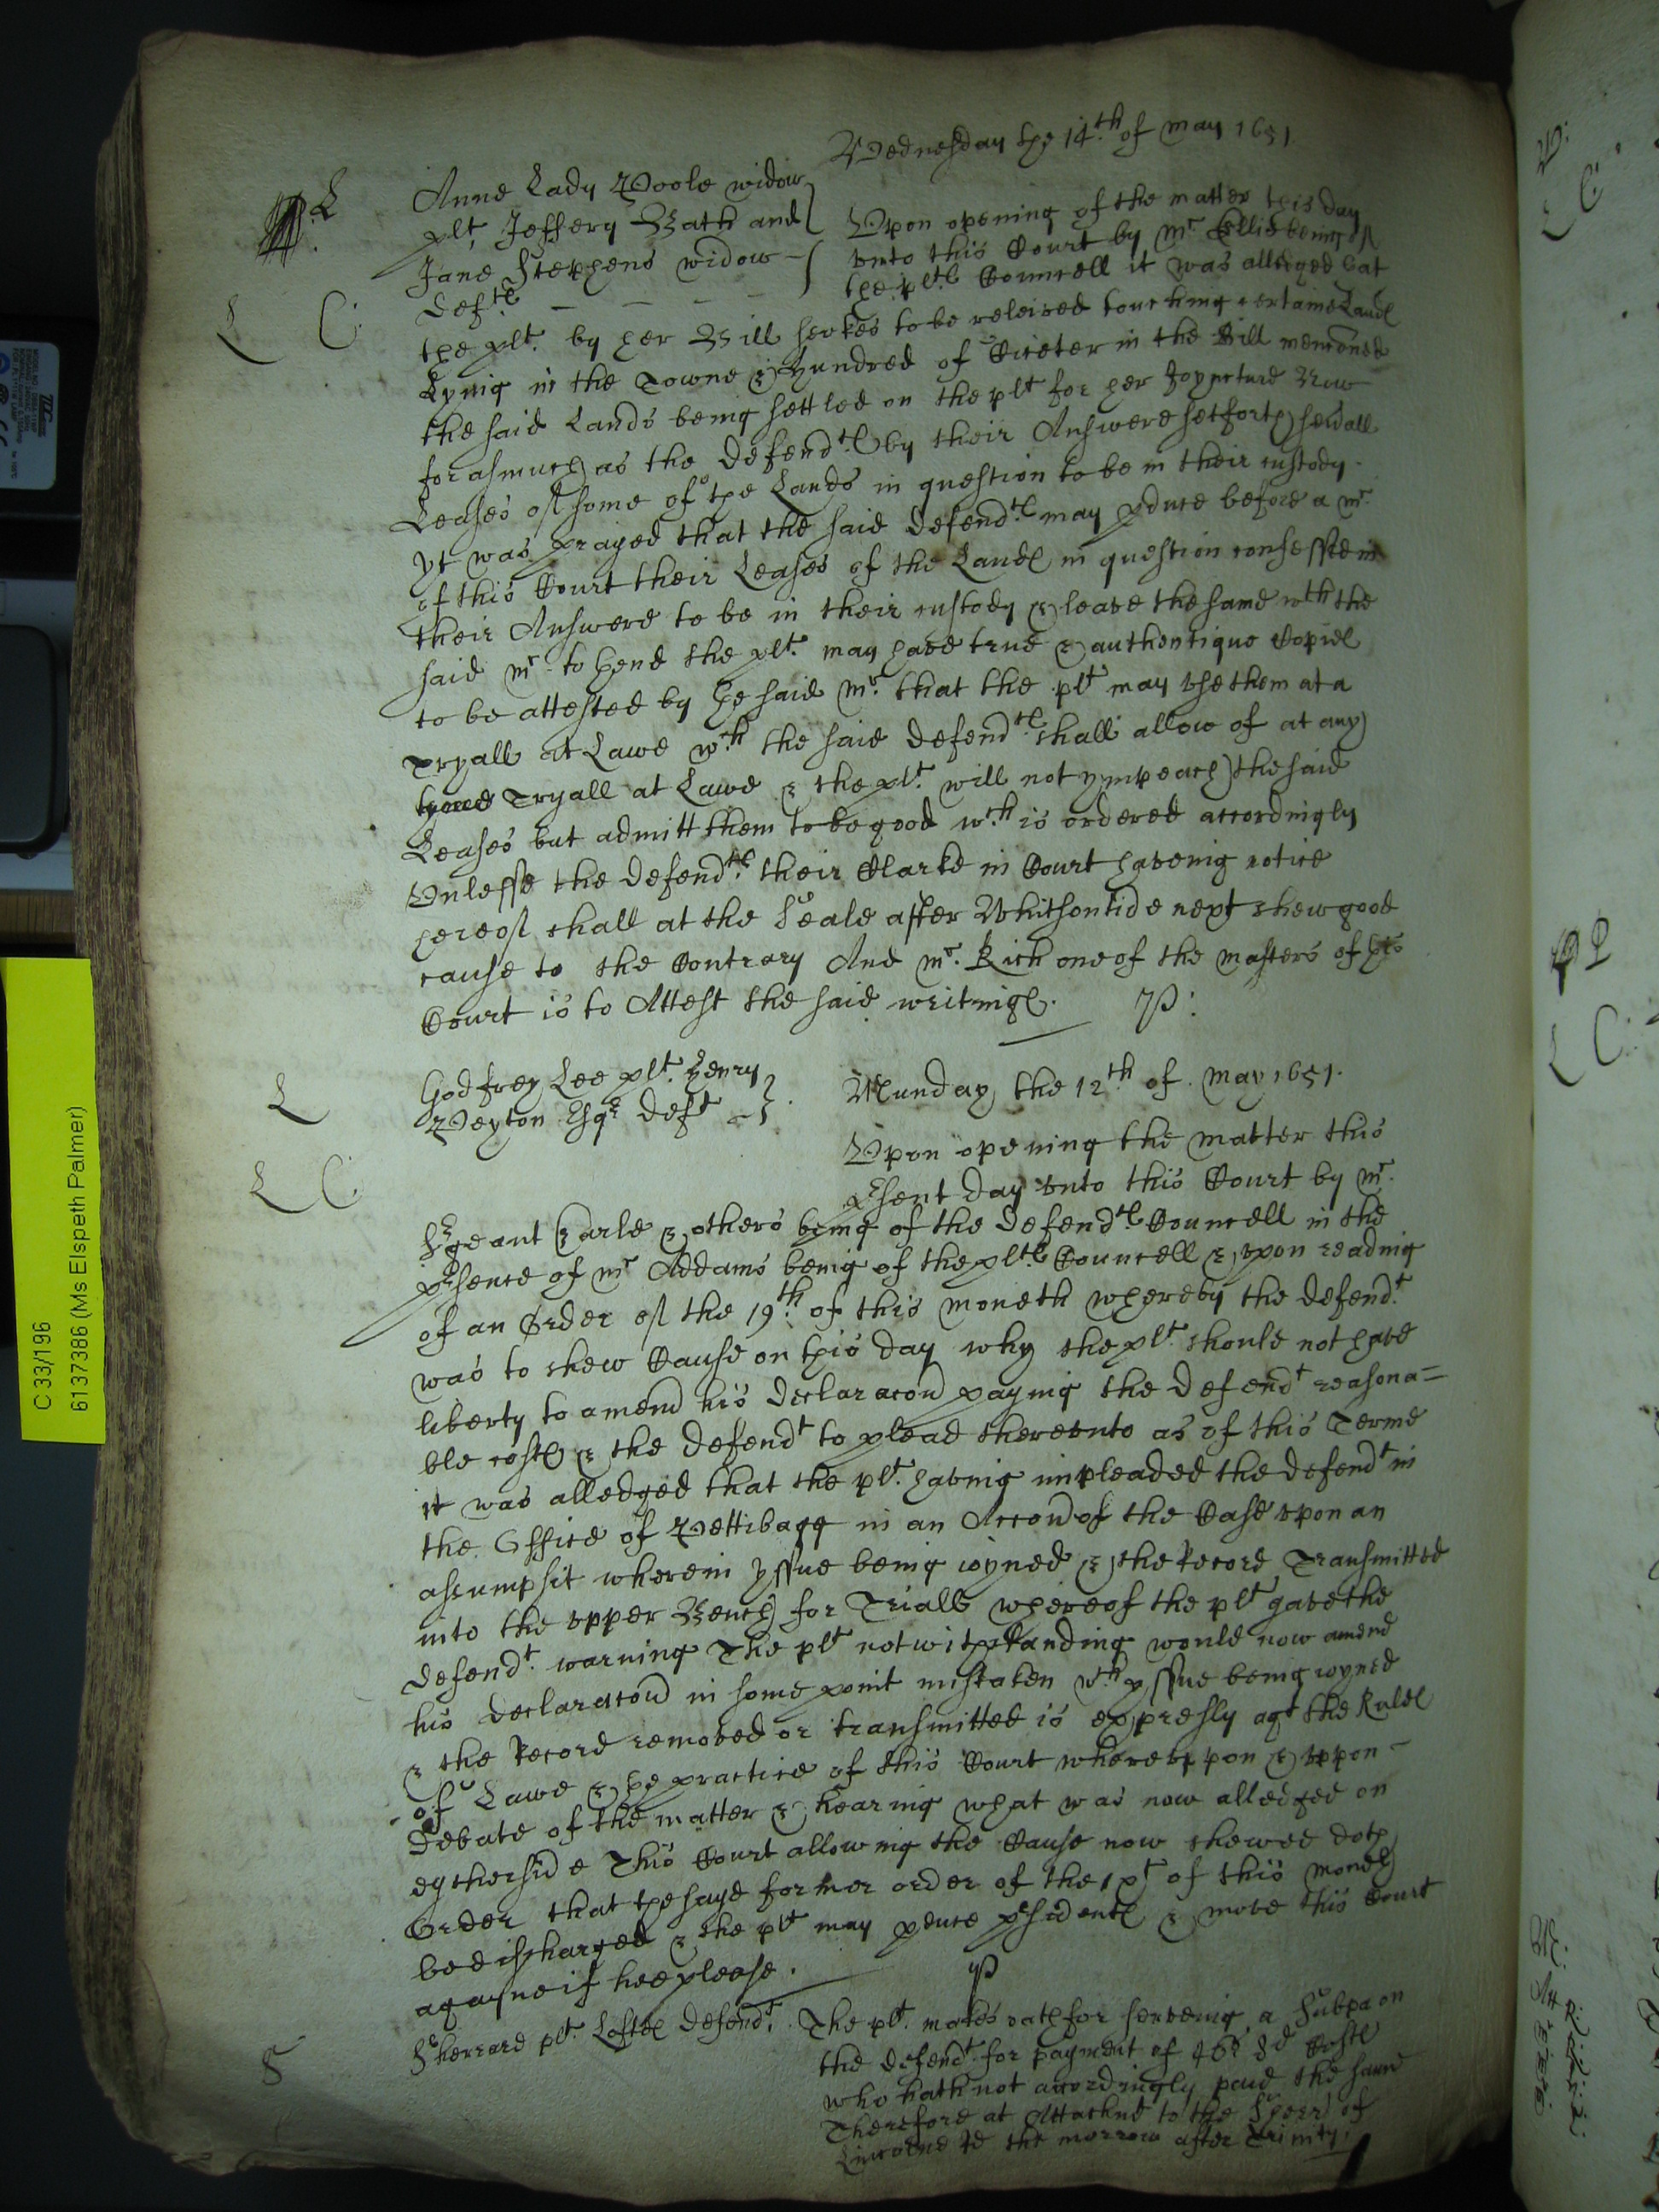 Wednesday the 14th of may 1651
L
Anne Lady Poole widow
plt Jeffery Bath and
Jane Stephens widow
Deftes
Upon opening of the matter this day
vnto this Court by mr Ellis being of
the pltes Councell it was alledged that
L C
the plt by her Bill seekes to be releived touching certaine Landes
Lying in the Towne & Hundred of Ciceter in the Bill menconed
the said Lands being settled on the plt for her Joyncture Now
forasmuch as the Defendtes by their Answere setforth sevall
Leases of some of the Lands in question to be in their custody
yt was prayed that the said Defendtes may pduce before a mr
of this Court their Leases of the Landes in question confessed in
their Answere to be in their custody & leave the same wth the
said mr to thend the plt may have true & authentique Copies
to be attested by the said mr that the plt may vse them at a
Tryall at Lawe wch the said Defendtes shall allow of at any
Tryall at Lawe & the plt will not ympeach the said
Leases but admitt them to be good wch is ordered accordingly
Vnlesse the defendtes their Clarke in Court haveing notice
hereof shall at the Seale after Whitsontide next shew good
cause to the Contrary And mr Rich one of the masters of this
Court is to Attest the said writinges.
L
Godfrey Lee plt Henry
Peyton Esqr Deft
Munday the 12th of May 1651.
Vpon opening the matter this
L C
psent day vnto this Court by mr
Sergeant Earle & others being of the Defendtes Councell in the
psence of mr Addams being of the pltes Councell & vpon reading
of an Order of the 19th of this moneth whereby the defendt
was to shew Cause on this day why the plt should not have
liberty to amend his Declaracon paying the Defendt reasona=
ble costes & the Defendt to plead therevnto as of this Terme
it was alledged that the plt having impleaded the defendt in
the Office of Pettibagg in an Accon of the Case vpon an
assumpsit wherein yssue being ioyned & the Record Transmitted
into the vpper Bench for Triall whereof the plt gave the
defendt warning The plt notwithstanding would now amend
his declaracon in some point mistaken wch yssue being ioyned
& the Record removed or transmitted is expresly agt the Rules
of Lawe & the practice of this Court wherevppon & vppon
Debate of the matter & hearing what was now alledged on
eytherside This Court allowing the Cause now shewed doth
Order that the sayd former order of the of this moneth
be discharged & the plt may pduce psidentes & move this Court
agayne if hee please.
S
Sherrard plt Loftes Defendt
The plt makes oath for serveing a Subpa on
the defendt for payment of 46s 8d Costes
who hath not accordingly paid the same
Therefore at Attachmt to the Sherr of
Lincolne the morrow after Trinity
C 33/196
6137386 (Ms Elspeth Palmer)